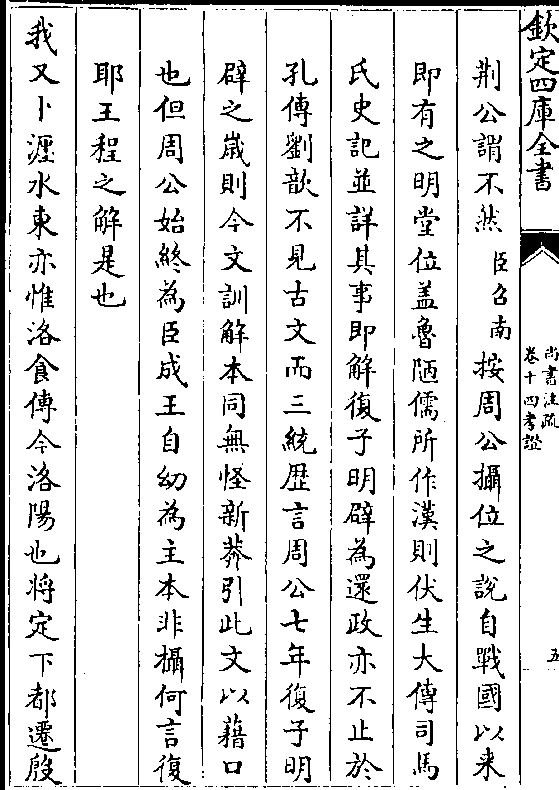 欽定四庫全書
尚書注疏
卷十四考證
五
荆公謂不然臣召南按周公攝位之說自戰國以来
即有之明堂位盖魯陋儒所作漢則伏生大傳司馬
氏史記並詳其事即解復子明辟為還政亦不止於
孔傳劉歆不見古文而三統歴言周公七年復子明
辟之嵗則今文訓解本同無怪新莽引此文以藉口
也但周公始終為臣成王自幼為主本非攝何言復
耶王程之解是也
我又卜瀍水東亦惟洛食傳今洛陽也将定下都遷殷